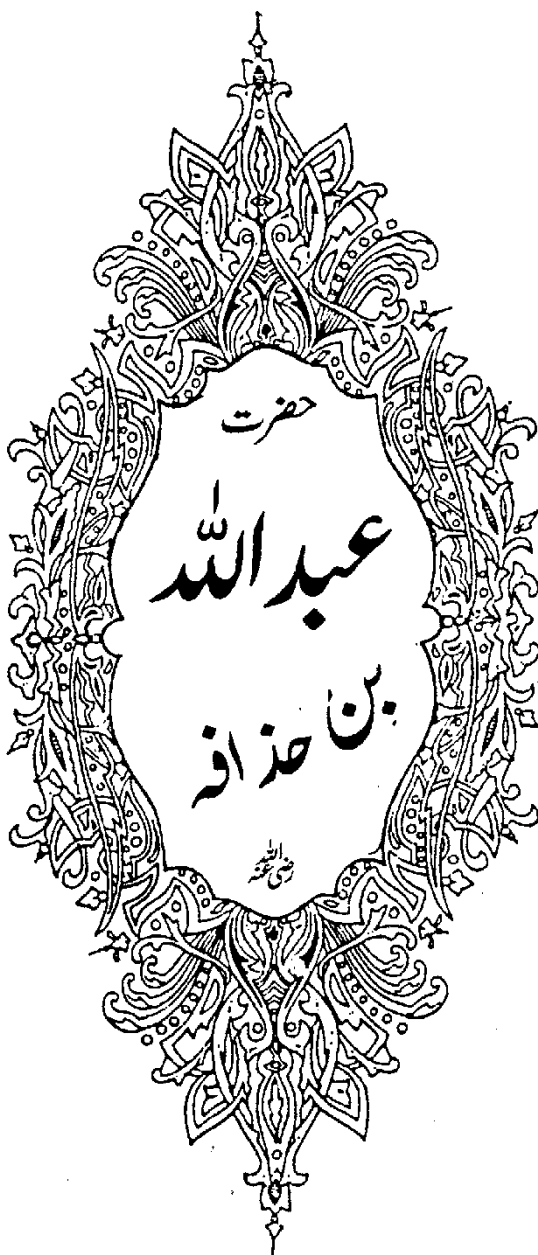 حضرت
عبد اللہ
بن حذافہ
رضی اللہ عنہ